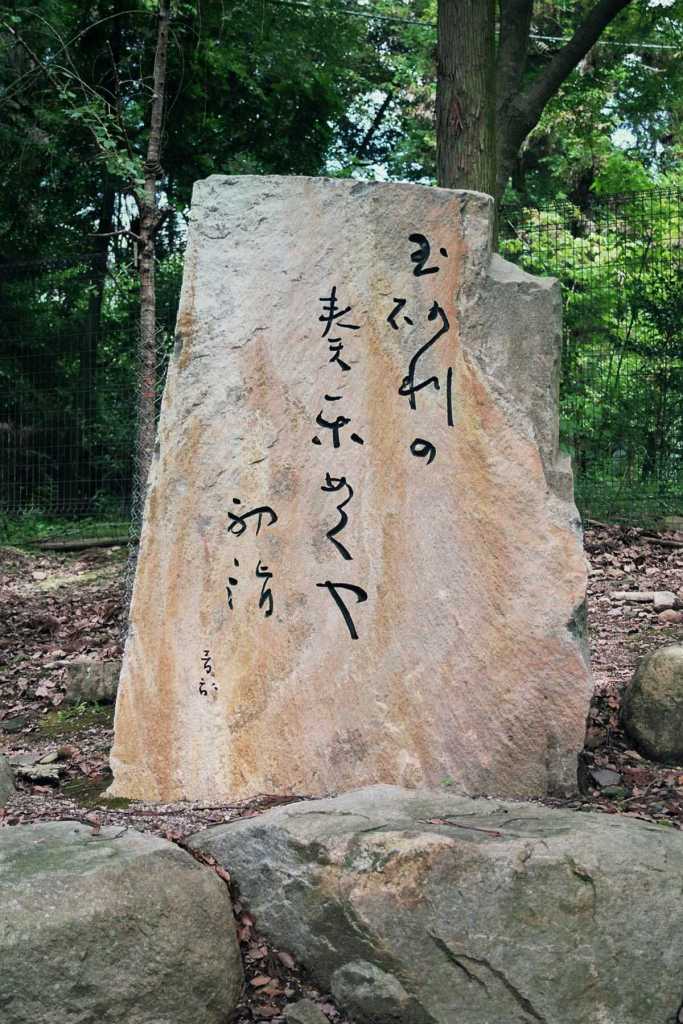 玉砂利の
奏楽めくや
初詣